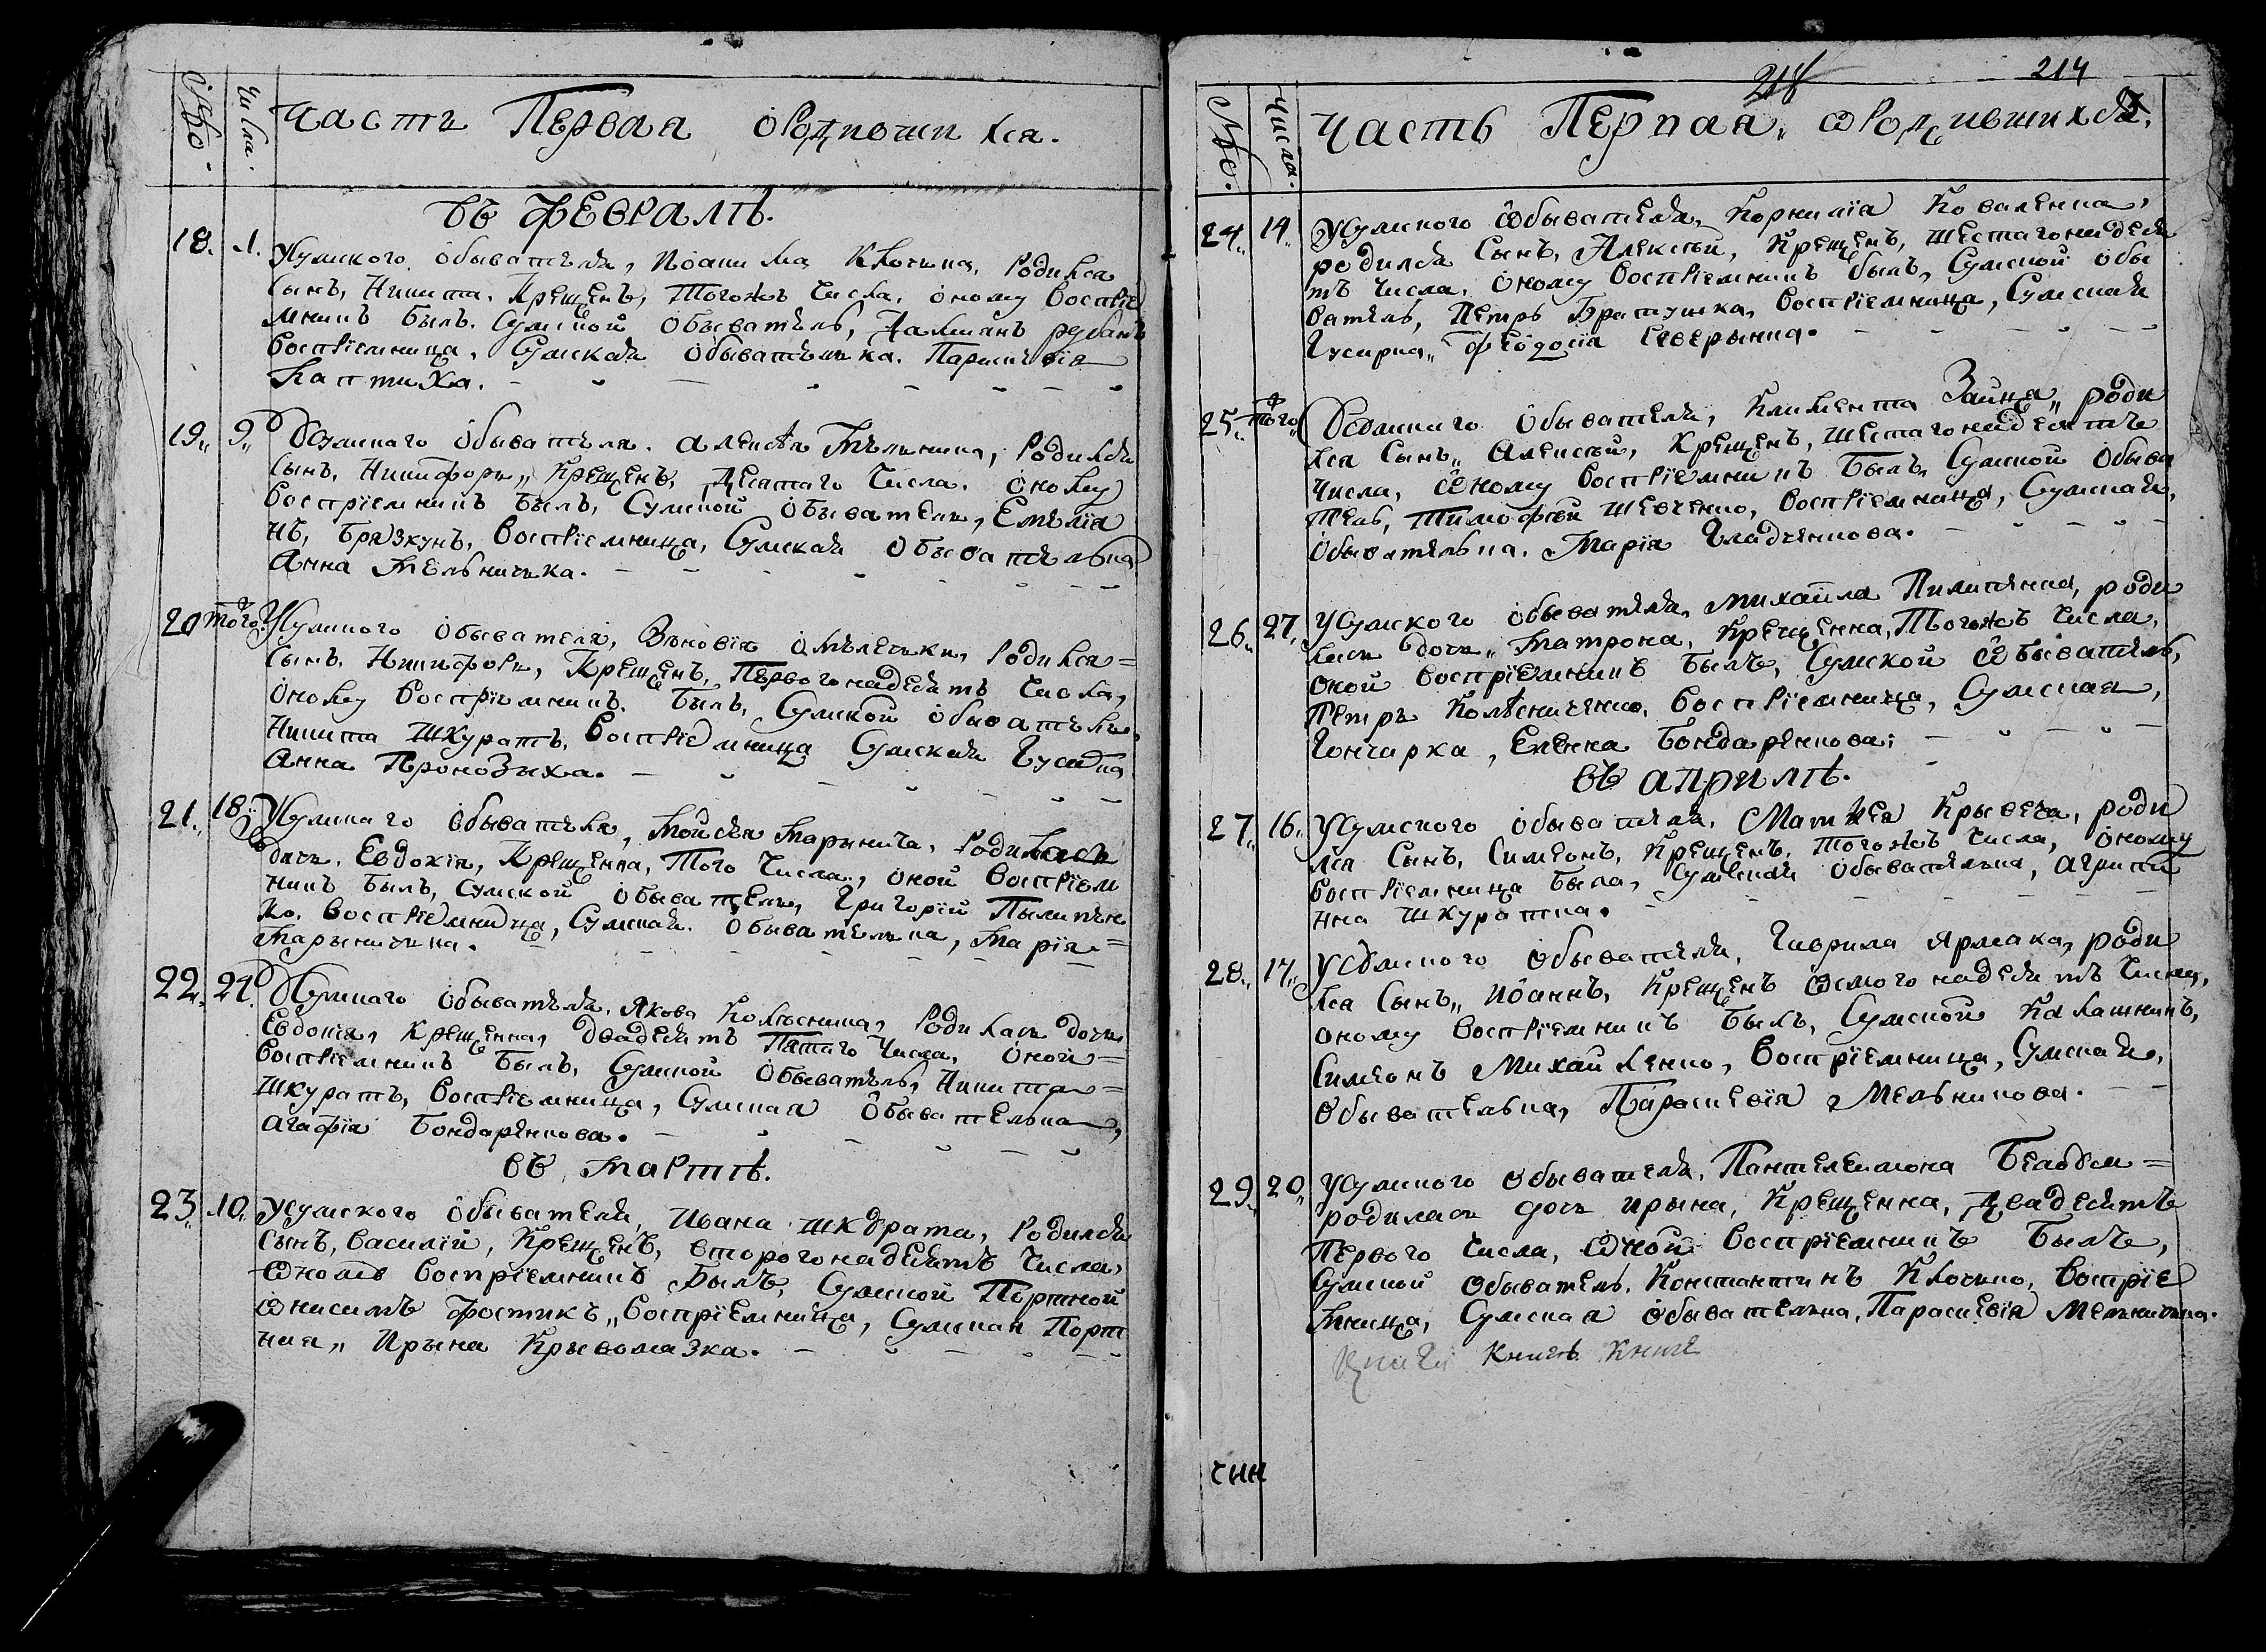 Число.
Часть Первая о Родившихся.
въ февралѣ.
18. 1. У Сумского обывателя, Иоанна Клочка, Родился
сынъ, Никита, Крещенъ, Тогожъ Числа, оному восприе
мникъ былъ Сумской обыватель, Далматъ
восприемница, Сумская обывателька, Параскевия
Лаптиха.
19. 9. У Сумскаго обывателя, Алексѣя Мельника, Родился
сынъ, Никифоръ, Крещенъ, Десятаго Числа, оному
восприемникъ былъ, Сумской обыватель, Емелия
нъ, Брязкунъ, восприемница, Сумская обывателька
Анна Мельничка.
20 того У Сумского обывателя, Зѣновия Омелечки, Родился
сынъ, Никифоръ, Крещенъ, Первогонадесять Числа,
оному восприемникъ, былъ, Сумской обыватель,
Никита Шкуратъ, восприемница Сумская
Анна Пронозиха.
21. 18. У Сумскаго обывателя, Мойсея Марынича, Родилась
дочь, Евдокия, Крещенна, Того Числа, оной восприем
никъ былъ, Сумской обыватель, Григорий Пылипен
ко, восприемница, Сумская обывателька, Мария
Марыничка.
22. 21. У Сумскаго обывателя, Якова Колѣсника, Родилась дочь
Евдокия, Крещенна, Двадесять Пятаго Числа, оной
восприемникъ былъ, Сумской обыватель, Никита
Шкуратъ, восприемница, Сумская обывателька,
Агафия Бондаренкова.
въ мартѣ.
23. 10. У Сумского обывателя, Ивана Шкурата, Родился
сынъ, Василий, Крещенъ, второгонадесять Числа,
оному восприемникъ былъ, Сумской Портной
Онисимъ Фостикъ, восприемница, Сумская Порт
ная, Ирына Крывомазка.
214
Число.
Часть Первая, о Родившихся.
24. 14. У Сумского обывателя, Корнилия Коваленка,
родился Сынъ, Алексѣй, Крещенъ, шестагонадеся
ть числа, оному восприемникъ былъ, Сумской обы
ватель, Петръ Братушка, восприемница, Сумская
Гусарка, Феодосия Северынка.
25. того У Сумскаго обывателя, Климента Зайца, роди
лся Сынъ, Алексѣй, Крещенъ, шестагонадесять
числа, оному восприемникъ былъ, Сумской обыва
тель, Тимофей Шевченко, восприемница, Сумская,
обывателька, Мария Гладченкова.
26. 27. У Сумского обывателя, Михаила Пилипенка, роди
лась дочь, Матрона, Крещенна, Тогожъ числа,
оной восприемникъ былъ, Сумской обыватель,
Петръ Колѣсниченко, восприемница, Сумская,
Гончарка, Еленна Бондаренкова.
въ априлѣ.
27. 16. У Сумского обывателя, Матвея Крывеча, роди
лся Сынъ, Симеонъ, Крещенъ, тогожъ числа, оному
восприемница была, Сумская обывателька, Агрипи
нна Шкуратка.
28. 17. У Сумского обывателя, Гаврила Ярмака, роди
лся Сынъ, Иоаннъ, Крещенъ осмогонадесять Числа,
оному восприемникъ былъ, Сумской Калашникъ,
Симеонъ Михайленко, восприемница, Сумская,
обывателька, Параскевия Мельникова.
29. 20. У Сумского обывателя, Пантелеимона
родилась дочь Ирына, Крещенна, Двадесять
Первого числа, оной восприемникъ былъ,
Сумской обыватель, Константинъ Клочко, восприе
мница, Сумская обывателька, Параскевия Мельничка.